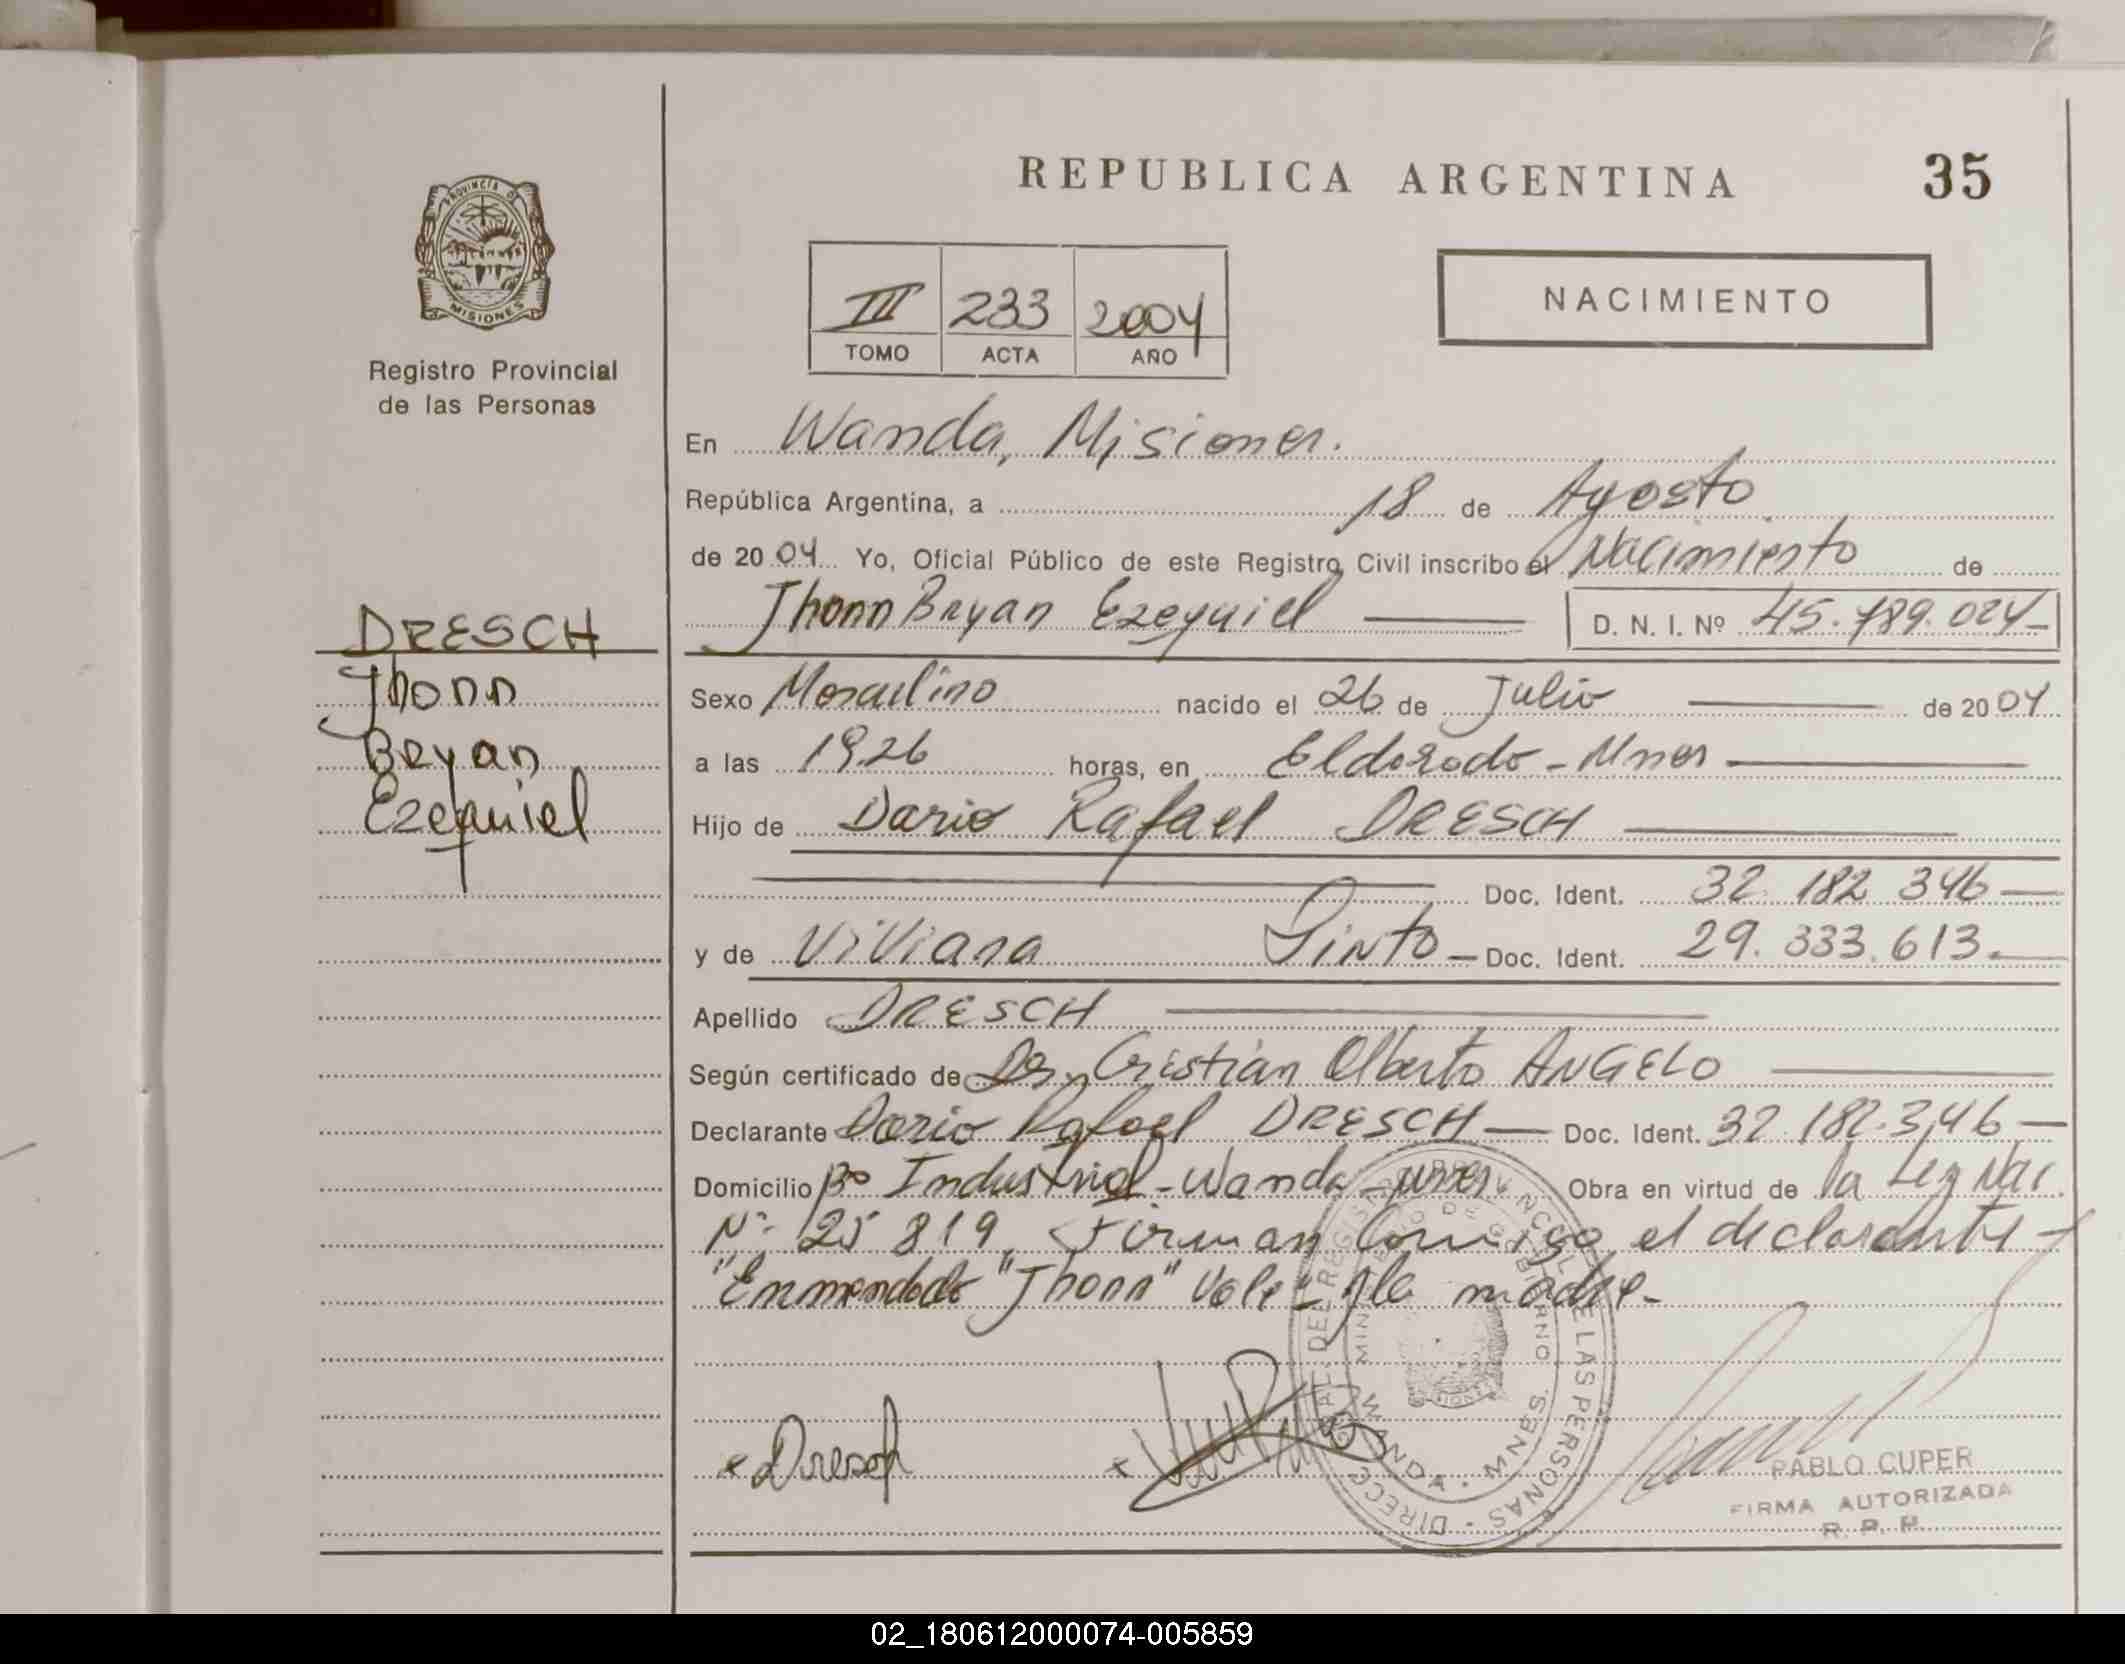 REPUBLICA ARGENTINA
35
PROVINCIA DE
MISIONES
Registro Provincial
de las Personas
III 233 2004
TOMO ACTA AÑO
NACIMIENTO
En Wanda, Misiones.
República Argentina, a 18 de Agosto
de 2004 Yo, Oficial Público de este Registro Civil inscribo el Nacimiento de
Jhonn Bryan Ezequiel D. N. I. Nº 45.789.024
DRESCH
Jhonn
Bryan
Ezequiel
Sexo Masculino nacido el 26 de Julio de 2004
a las 19.26 horas, en Eldorado - Mnes
Hijo de Dario Rafael DRESCH
Doc. Ident. 32 182 346
y de Viviana Pinto - Doc. Ident. 29.333.613.
Apellido DRESCH
Según certificado de Dr. Cristian Alberto ANGELO
Declarante Dario Rafael DRESCH - Doc. Ident. 32.182.346
Domicilio Bº Industrial - Wanda - Mnes. Obra en virtud de la Ley Nac.
Nº 25 819, Firman Conmigo el declarante -
"Enmendado "Jhonn" Vale" y la madre -
x Dresch
DIRECC. GRAL. DEL REGISTRO PROVINCIAL DE LAS PERSONAS
MINISTERIO DE GOBIERNO
WANDA - MNES.
PABLO CUPER
FIRMA AUTORIZADA
R. P. P.
02_180612000074-005859